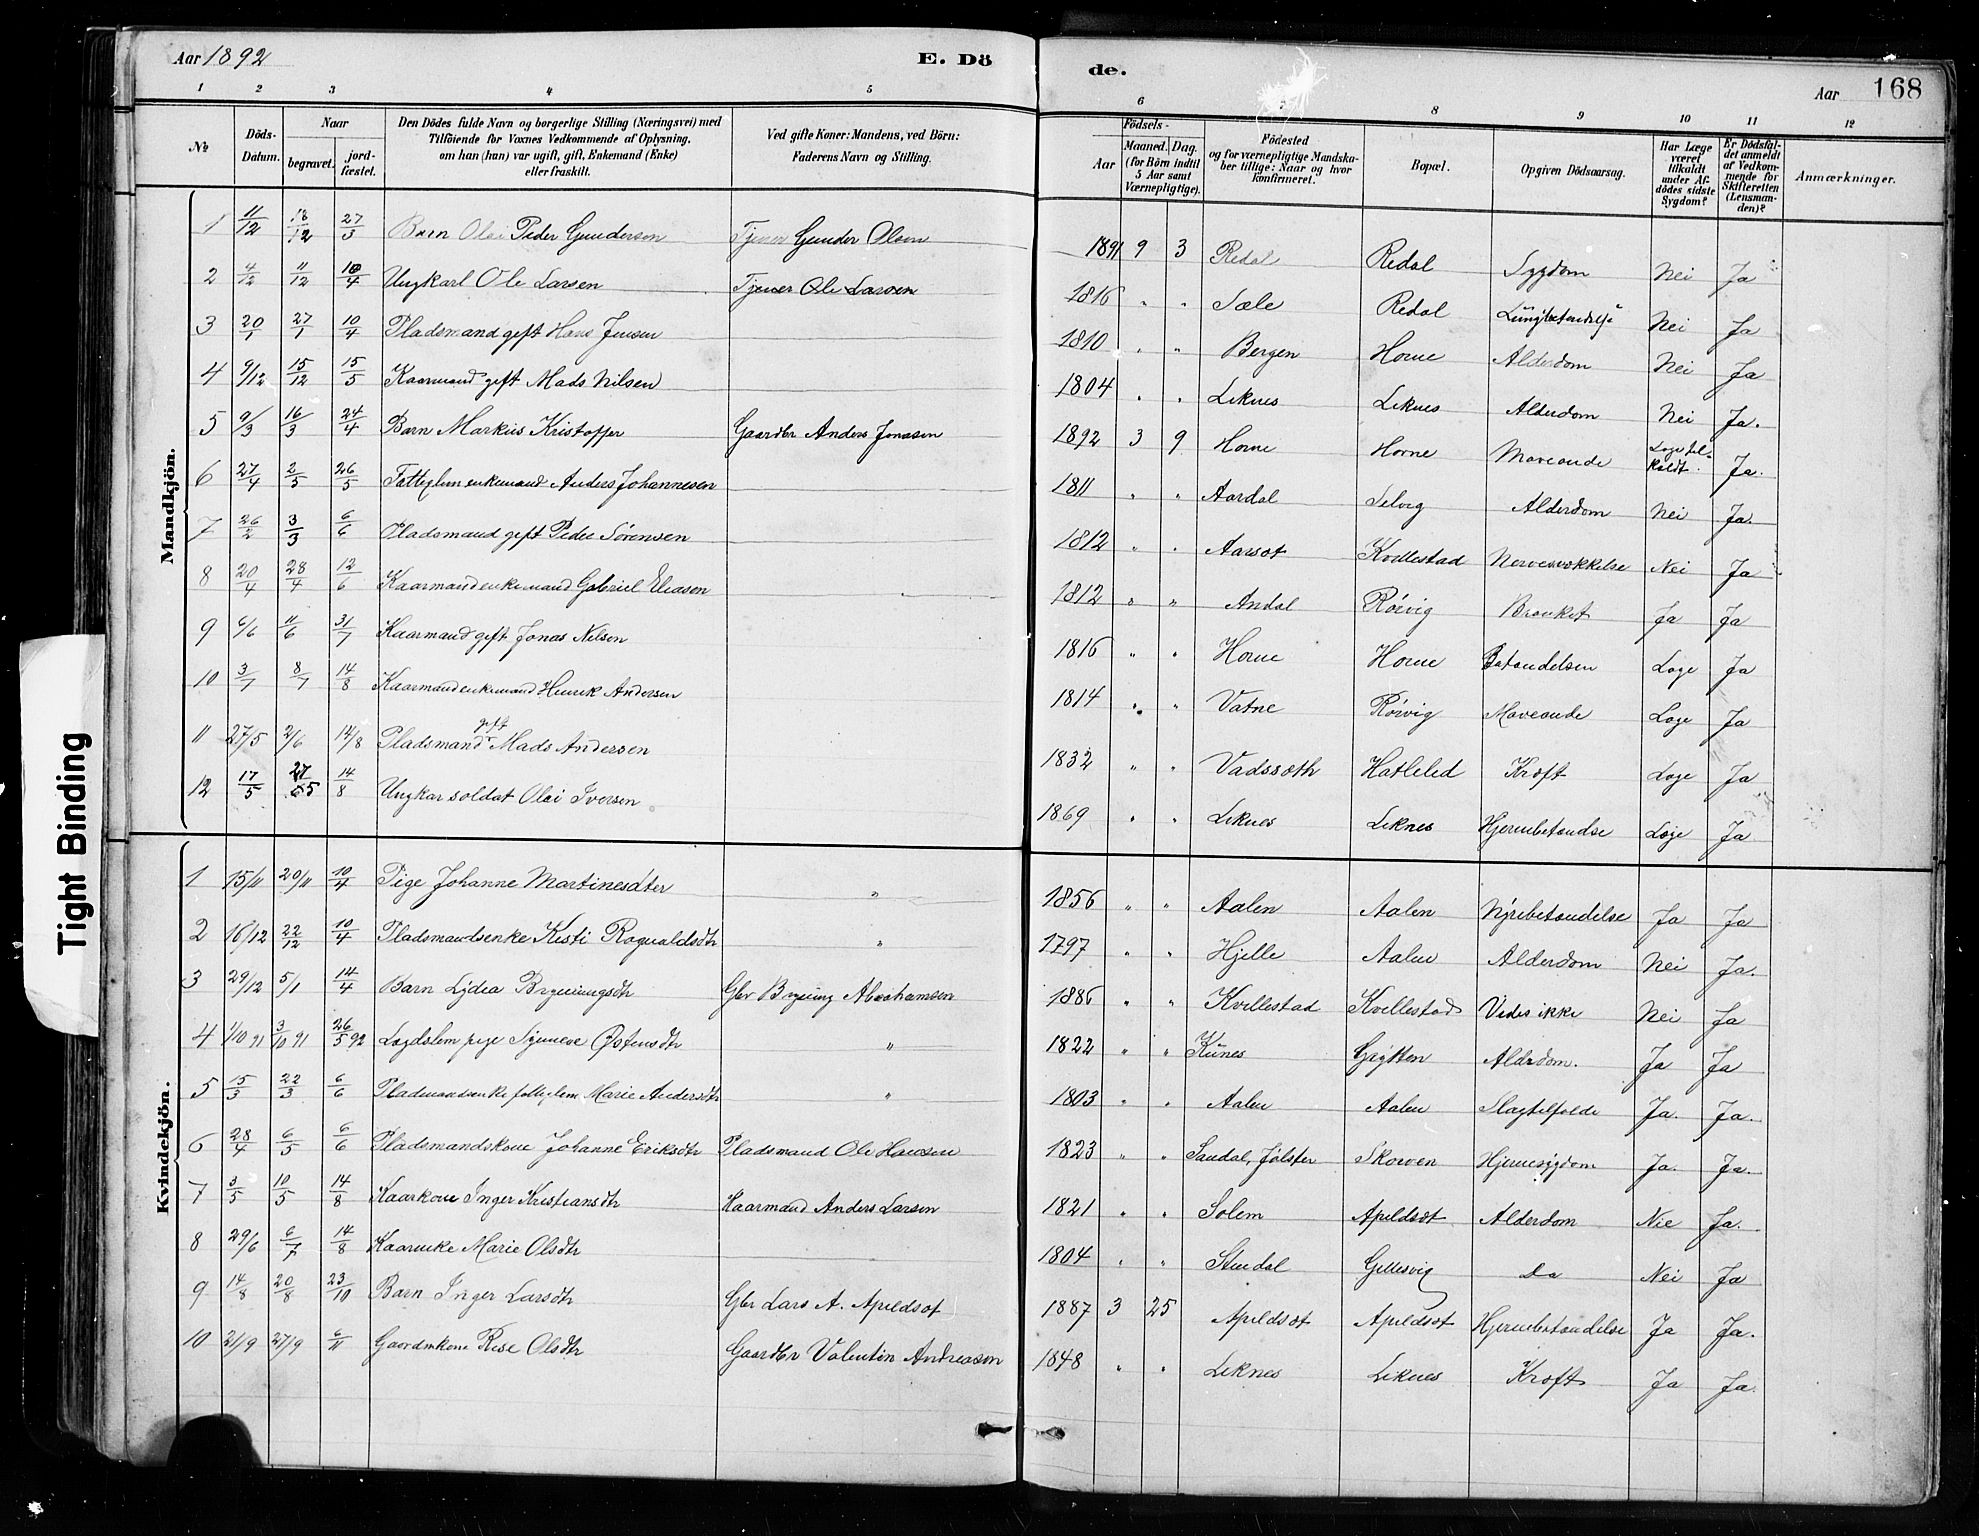 Aar 1892 E. Dö de. Aar 168
1 2 3 4 5 6 7 8 9 10 11 12
№ Döds-Datum. Naar begravet. jord-fæstet. Den Dödes fulde Navn og borgerlige Stilling (Næringsvei) med Tilföiende for Voxnes Vedkommende af Oplysning, om han (hun) var ugift, gift, Enkemand (Enke) eller fraskilt. Ved gifte Koner: Mandens, ved Börn: Faderens Navn og Stilling. Födsels- Aar Maaned. Dag. (for Börn indtil 5 Aar samt Værnepligtige). Födested og for værnepligtige Mandskaber tillige: Naar og hvor konfirmeret. Bopæl. Opgiven Dödsaarsag. Har Læge været tilkaldt under Afdödes sidste Sygdom? Er Dödsfaldet anmeldt af Vedkommende for Skifteretten (Lensmanden)? Anmærkninger.
Mandkjön.
1 11/12 18/12 27/3 Barn Olai Peder Gundersen Tjener Gunder Olsen 1891 9 3 Redal Redal Sygdom Nei Ja
2 4/12 11/12 10/4 Ungkarl Ole Larsen Tjener Ole Larsen 1816 " " Sæle Redal Lungbetændelse Nei Ja
3 20/1 27/1 10/4 Pladsmand gift Hans Jensen 1810 " " Bergen Horne Alderdom Nei Ja
4 9/12 15/12 15/5 Kaarmand gift Mads Nilsen 1804 " " Leknes Leknes Alderdom Nei Ja.
5 9/3 16/3 24/4 Barn Markus Kristoffer Gaardbr Anders Jonasen 1892 3 9 Horne Horne Maveonde Læge til-kaldt. Ja.
6 27/4 2/5 26/5 Fattiglem enkemand Anders Johannesen 1811 " " Aardal Selvig Alderdom Nei Ja.
7 26/2 3/3 6/6 Pladsmand gift Peder Sørensen 1812 " " Aarsøt Kvellestad Nervesvækkelse Nei Ja
8 20/4 28/4 12/6 Kaarmand enkemand Gabriel Eliasen 1812 " " Andal Rørvig Brøkket Ja Ja
9 6/6 11/6 31/7 Kaarmand gift Jonas Nilsen 1816 " " Horne Horne Betændelsen Læge Ja
10 3/7 8/7 14/8 Kaarmand enkemand Henrik Andersen 1814 " " Vatne Rørvig Maveonde Læge Ja
11 27/5 2/6 14/8 Pladsmand gift Mads Andersen 1832 " " Vadssøth Hatleled Kræft Læge Ja
12 17/5 27/5 14/8 Ungkar soldat Olai Iversen 1869 " " Leknes Leknes Hjernbetændse Læge Ja
Kvindekjön.
1 15/11 20/11 10/4 Pige Johanne Martinesdter " 1856 " " Aalen Aalen Nyrebetændelse Ja Ja
2 16/12 22/12 10/4 Pladsmandsenke Kisti Ragnaldsdtr " 1797 " " Hjelle Aalen Alderdom Nei Ja.
3 29/12 5/1 14/4 Barn Lydea Brynungsdtr Gbr Brynung Abrahamsen 1886 " " Kvellestad Kvellestad Vides ikke Nei Ja
4 1/10 91 3/10 91 26/5 92 Lægdslem pige Synneve Østensdtr " 1822 " " Kunes Grytten Alderdom. Ja Ja
5 15/3 22/3 6/6 Pladsmandsenke fattiglem Marie Andersdtr " 1803 " " Aalen Aalen Slagtilfælde Ja. Ja.
6 28/4 6/5 6/6 Pladsmandskone Johanne Eriksdtr Pladsmand Ole Hansen 1823 " " Sandal, Jølster Skorven Hjernesygdom Ja. Ja.
7 3/5 10/5 14/8 Kaarkone Inger Kristiansdtr Kaarmand Anders Larsen 1821 " " Solem Apeldsøt Alderdom Nie Ja.
8 29/6 6/7 14/8 Kaarenke Marie Olsdtr 1804 " " Stendal Gillesvig Do Nei Ja
9 14/8 20/8 23/10 Barn Inger Larsdtr Gbr Lars A. Apeldsøt 1887 3 25 Apeldsøt Apeldsøt Hjernbetændelse Ja Ja.
10 21/9 27/9 6/11 Gaardmkone Rise Olsdtr Gaardbr Valentin Andreasen 1848 " " Leknes Leknes Kræft Ja Ja.
Tight Binding